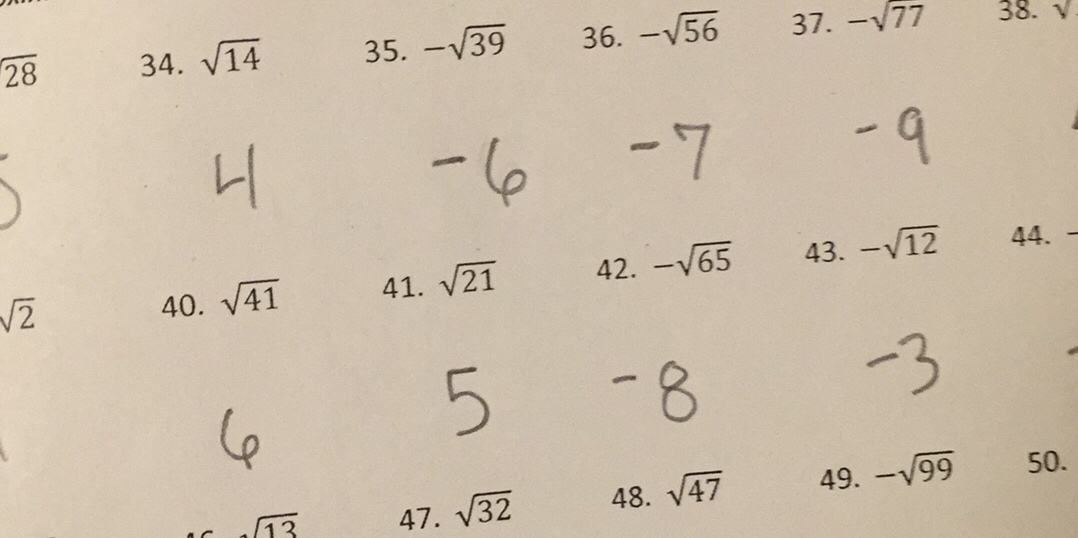 √28 34. √14 35. −√39 36. −√56 37. −√77 38. √
5 4 -6 -7 -9
√2 40. √41 41. √21 42. −√65 43. −√12 44. −
6 5 -8 -3 -
√13 47. √32 48. √47 49. −√99 50.